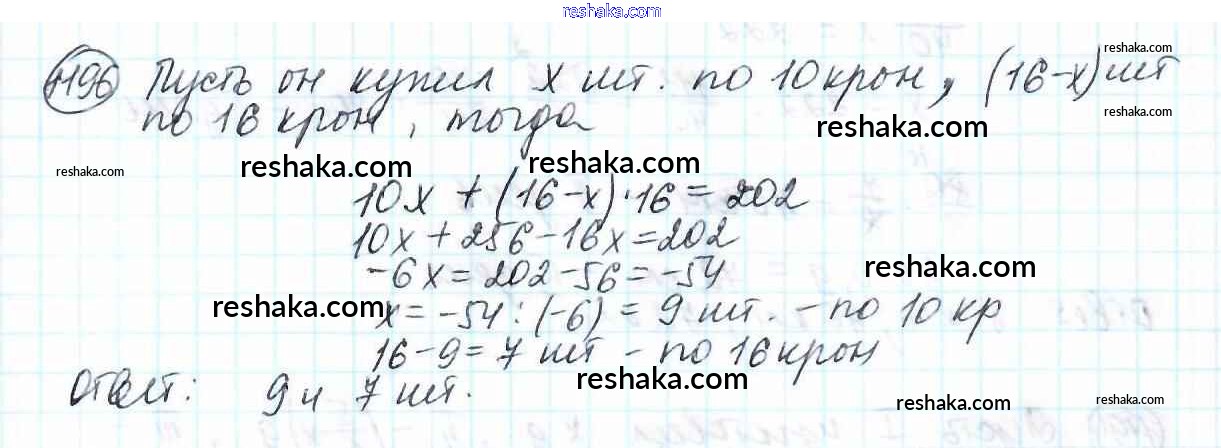 reshaka.com
1196 Пусть он купил x шт. по 10 крон, (16-x) шт
reshaka.com
по 16 крон, тогда
reshaka.com
reshaka.com
reshaka.com
reshaka.com
reshaka.com
10x + (16-x)·16 = 202
10x + 256 - 16x = 202
-6x = 202 - 56 = -54
reshaka.com
reshaka.com
x = -54 : (-6) = 9 шт. - по 10 кр
16 - 9 = 7 шт - по 16 крон
reshaka.com
Ответ: 9 и 7 шт.
reshaka.com
reshaka.com